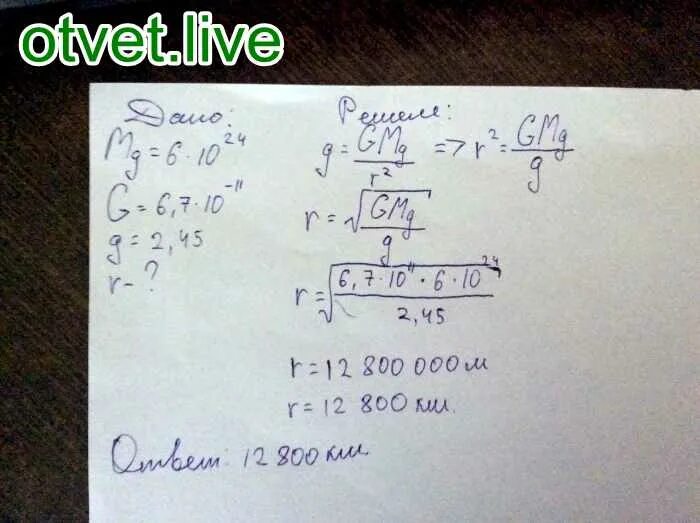 otvet.live
Дано:
Mg = 6 · 10²⁴
G = 6,7 · 10⁻¹¹
g = 2,45
r - ?
Решем:
g = GMg / r² => r² = GMg / g
r = √(GMg / g)
r = √(6,7 · 10¹¹ · 6 · 10²⁴ / 2,45)
r = 12 800 000 м
r = 12 800 км.
Ответ: 12 800 км